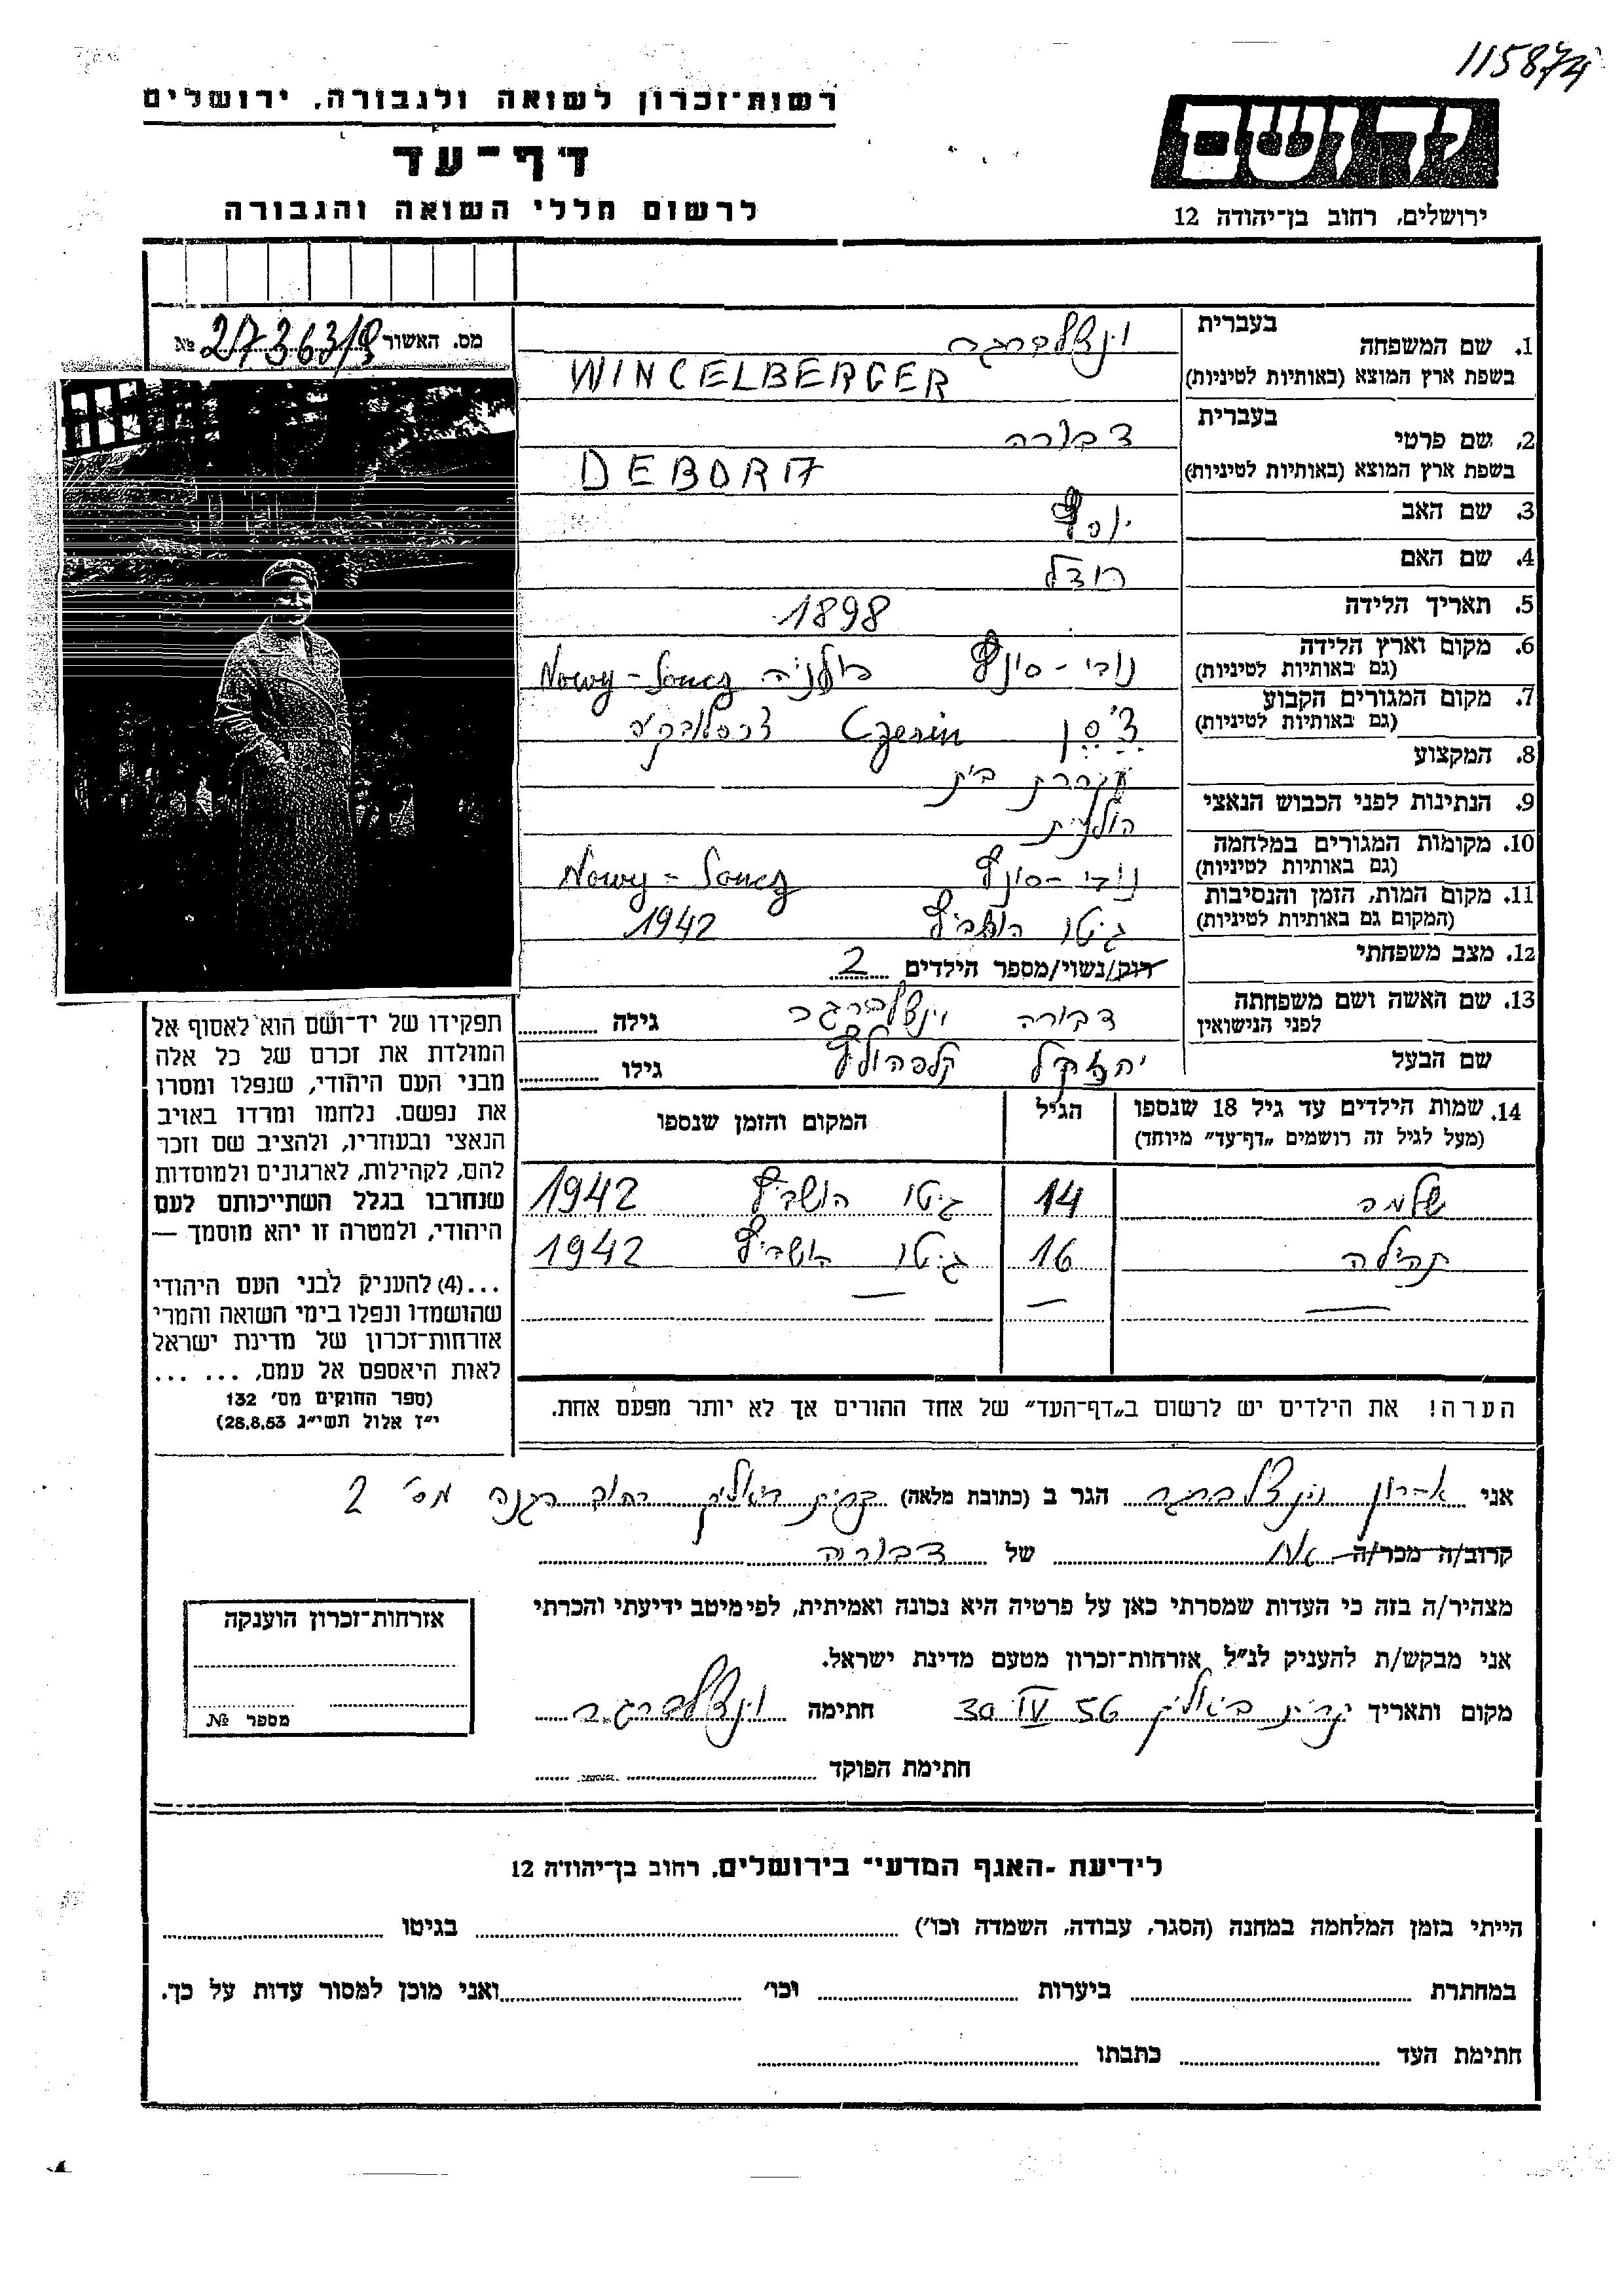 115874
רשות־זכרון לשואה ולגבורה, ירושלים
דף־עד
לרשום חללי השואה והגבורה
יד ושם
ירושלים, רחוב בן־יהודה 12
מס. האשור № 217363/9
1. שם המשפחה בעברית וינצלברגר
בשפת ארץ המוצא (באותיות לטיניות) WINCELBERGER
2. שם פרטי בעברית דבורה
בשפת ארץ המוצא (באותיות לטיניות) DEBORA
3. שם האב יוסף
4. שם האם
5. תאריך הלידה 1898
6. מקום וארץ הלידה (גם באותיות לטיניות) נובי-סונץ פולניה Nowy-Soncz
7. מקום המגורים הקבוע (גם באותיות לטיניות) Czerin
8. המקצוע עקרת בית
9. הנתינות לפני הכבוש הנאצי
10. מקומות המגורים במלחמה (גם באותיות לטיניות) נובי-סונץ Nowy-Soncz
11. מקום המות, הזמן והנסיבות (המקום גם באותיות לטיניות) גיטו 1942
12. מצב משפחתי רוק/נשוי/מספר הילדים 2
13. שם האשה ושם משפחתה לפני הנישואין דבורה וינצלברגר גילה
שם הבעל יחזקאל קלפהולץ גילו
14. שמות הילדים עד גיל 18 שנספו (מעל לגיל זה רושמים „דף־עד״ מיוחד) הגיל המקום והזמן שנספו
שלמה 14 גיטו 1942
תהילה 16 גיטו 1942
הערה! את הילדים יש לרשום ב„דף־העד״ של אחד ההורים אך לא יותר מפעם אחת.
תפקידו של יד־ושם הוא לאסוף אל
המולדת את זכרם של כל אלה
מבני העם היהודי, שנפלו ומסרו
את נפשם. נלחמו ומרדו באויב
הנאצי ובעוזריו, ולהציב שם וזכר
להם, לקהילות, לארגונים ולמוסדות
שנחרבו בגלל השתייכותם לעם
היהודי, ולמטרה זו יהא מוסמך —
...(4) להעניק לבני העם היהודי
שהושמדו ונפלו בימי השואה והמרי
אזרחות־זכרון של מדינת ישראל
לאות היאספם אל עמם, ... ...
(ספר החוקים מס׳ 132
י״ז אלול תשי״ג 28.8.53)
אני אהרון וינצלברגר הגר ב (כתובת מלאה) קרית ביאליק רחוב הגנה מס׳ 2
קרוב/ה מכר/ה אח של דבורה
מצהיר/ה בזה כי העדות שמסרתי כאן על פרטיה היא נכונה ואמיתית, לפי מיטב ידיעתי והכרתי
אני מבקש/ת להעניק לנ״ל אזרחות־זכרון מטעם מדינת ישראל.
מקום ותאריך קרית ביאליק 30 IV 56 חתימה וינצלברגר
חתימת הפוקד
אזרחות־זכרון הוענקה
מספר №
לידיעת ־האגף המדעי־ בירושלים, רחוב בן־יהודה 12
הייתי בזמן המלחמה במחנה (הסגר, עבודה, השמדה וכו׳) בגיטו
במחתרת ביערות וכו׳ ואני מוכן למסור עדות על כך.
חתימת העד כתבתו